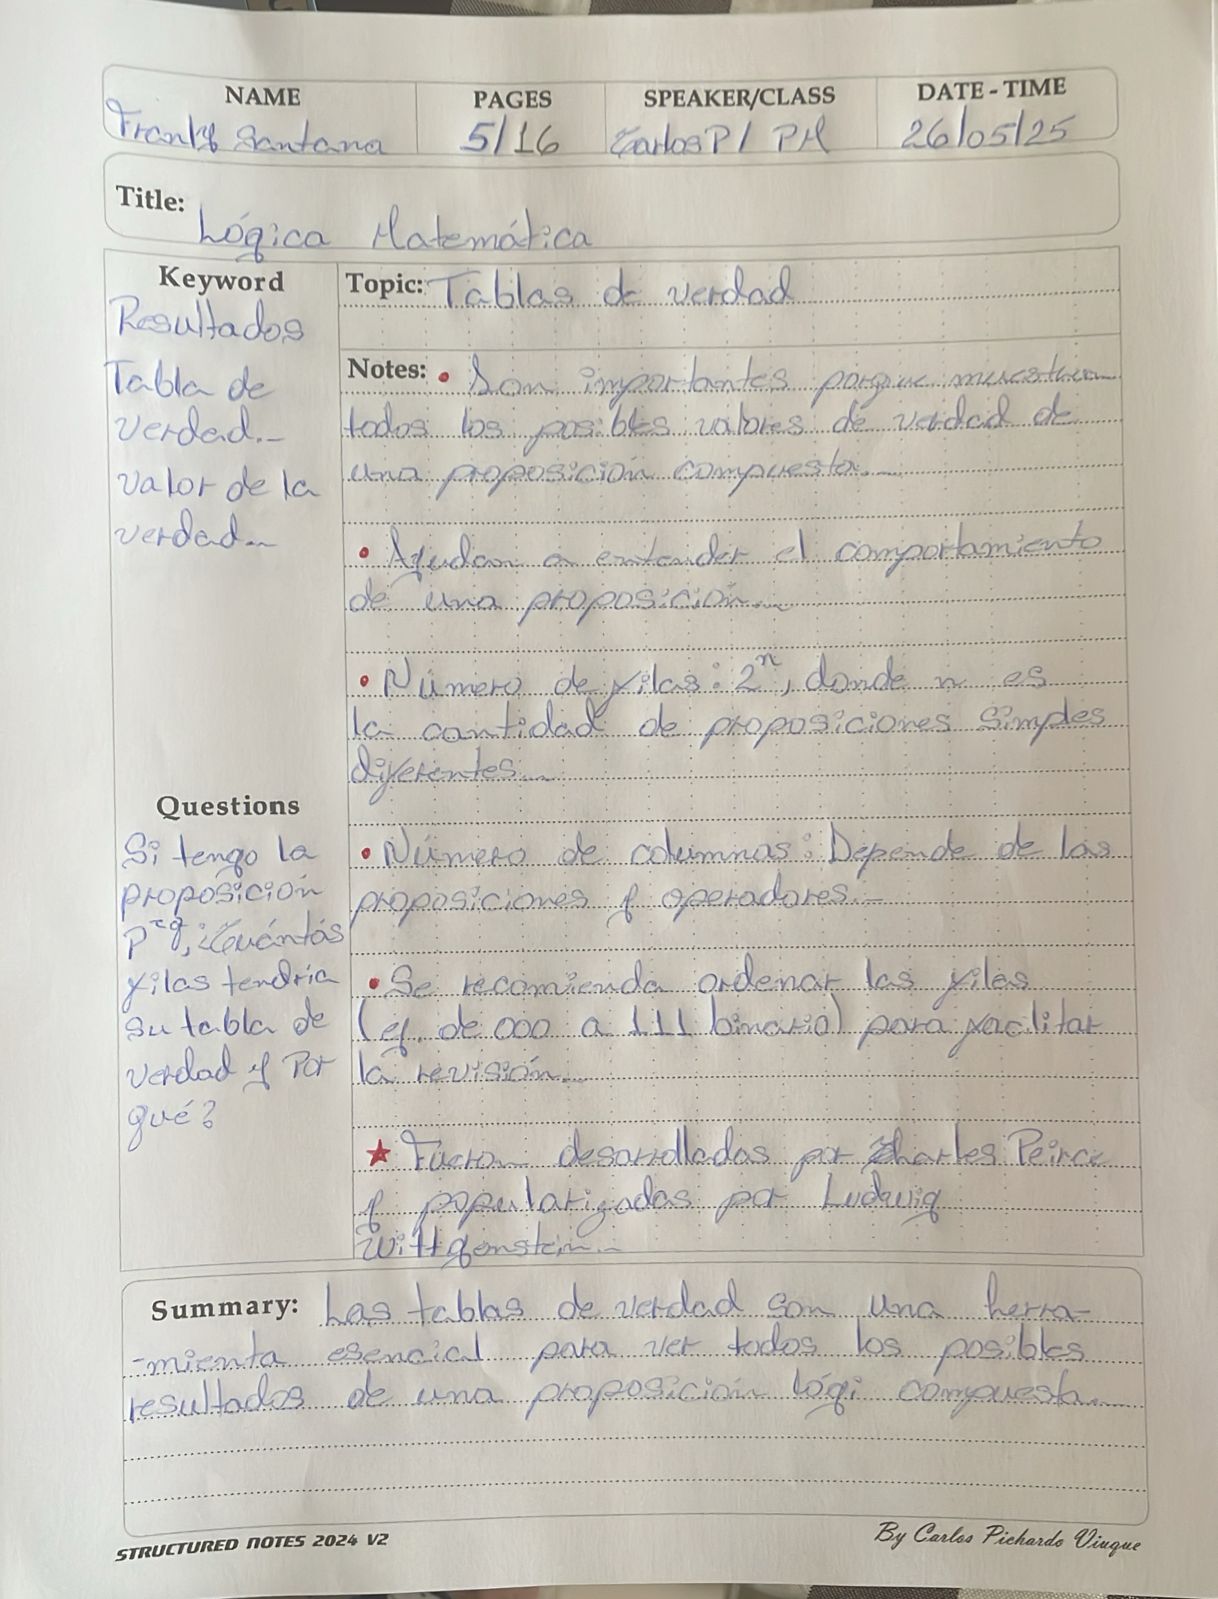 NAME PAGES SPEAKER/CLASS DATE-TIME
Frankf Santana 5/16 CarlosP/ PM 26/05/25
Title: Lógica Matemática
Keyword
Resultados
Tabla de
verdad.-
valor de la
verdad..
Topic: Tablas de verdad
Notes: • Son importantes porque muestran
todos los posibles valores de verdad de
una proposición compuesta...
• Ayudan a entender el comportamiento
de una proposición...
• Número de filas: 2ⁿ, donde n es
la cantidad de proposiciones simples
diferentes...
• Número de columnas: Depende de las
proposiciones y operadores.-
• Se recomienda ordenar las filas
(ej. de 000 a 111 binario) para facilitar
la revisión...
★ Fueron desarrolladas por Charles Peirce
y popularizadas por Ludwig
Wittgenstein...
Questions
Si tengo la
proposición
¿Cuántas
filas tendría
su tabla de
verdad y Por
qué?
Summary: Las tablas de verdad son una herra-
-mienta esencial para ver todos los posibles
resultados de una proposición lógi compuesta...
STRUCTURED NOTES 2024 V2
By Carlos Pichardo Viuque